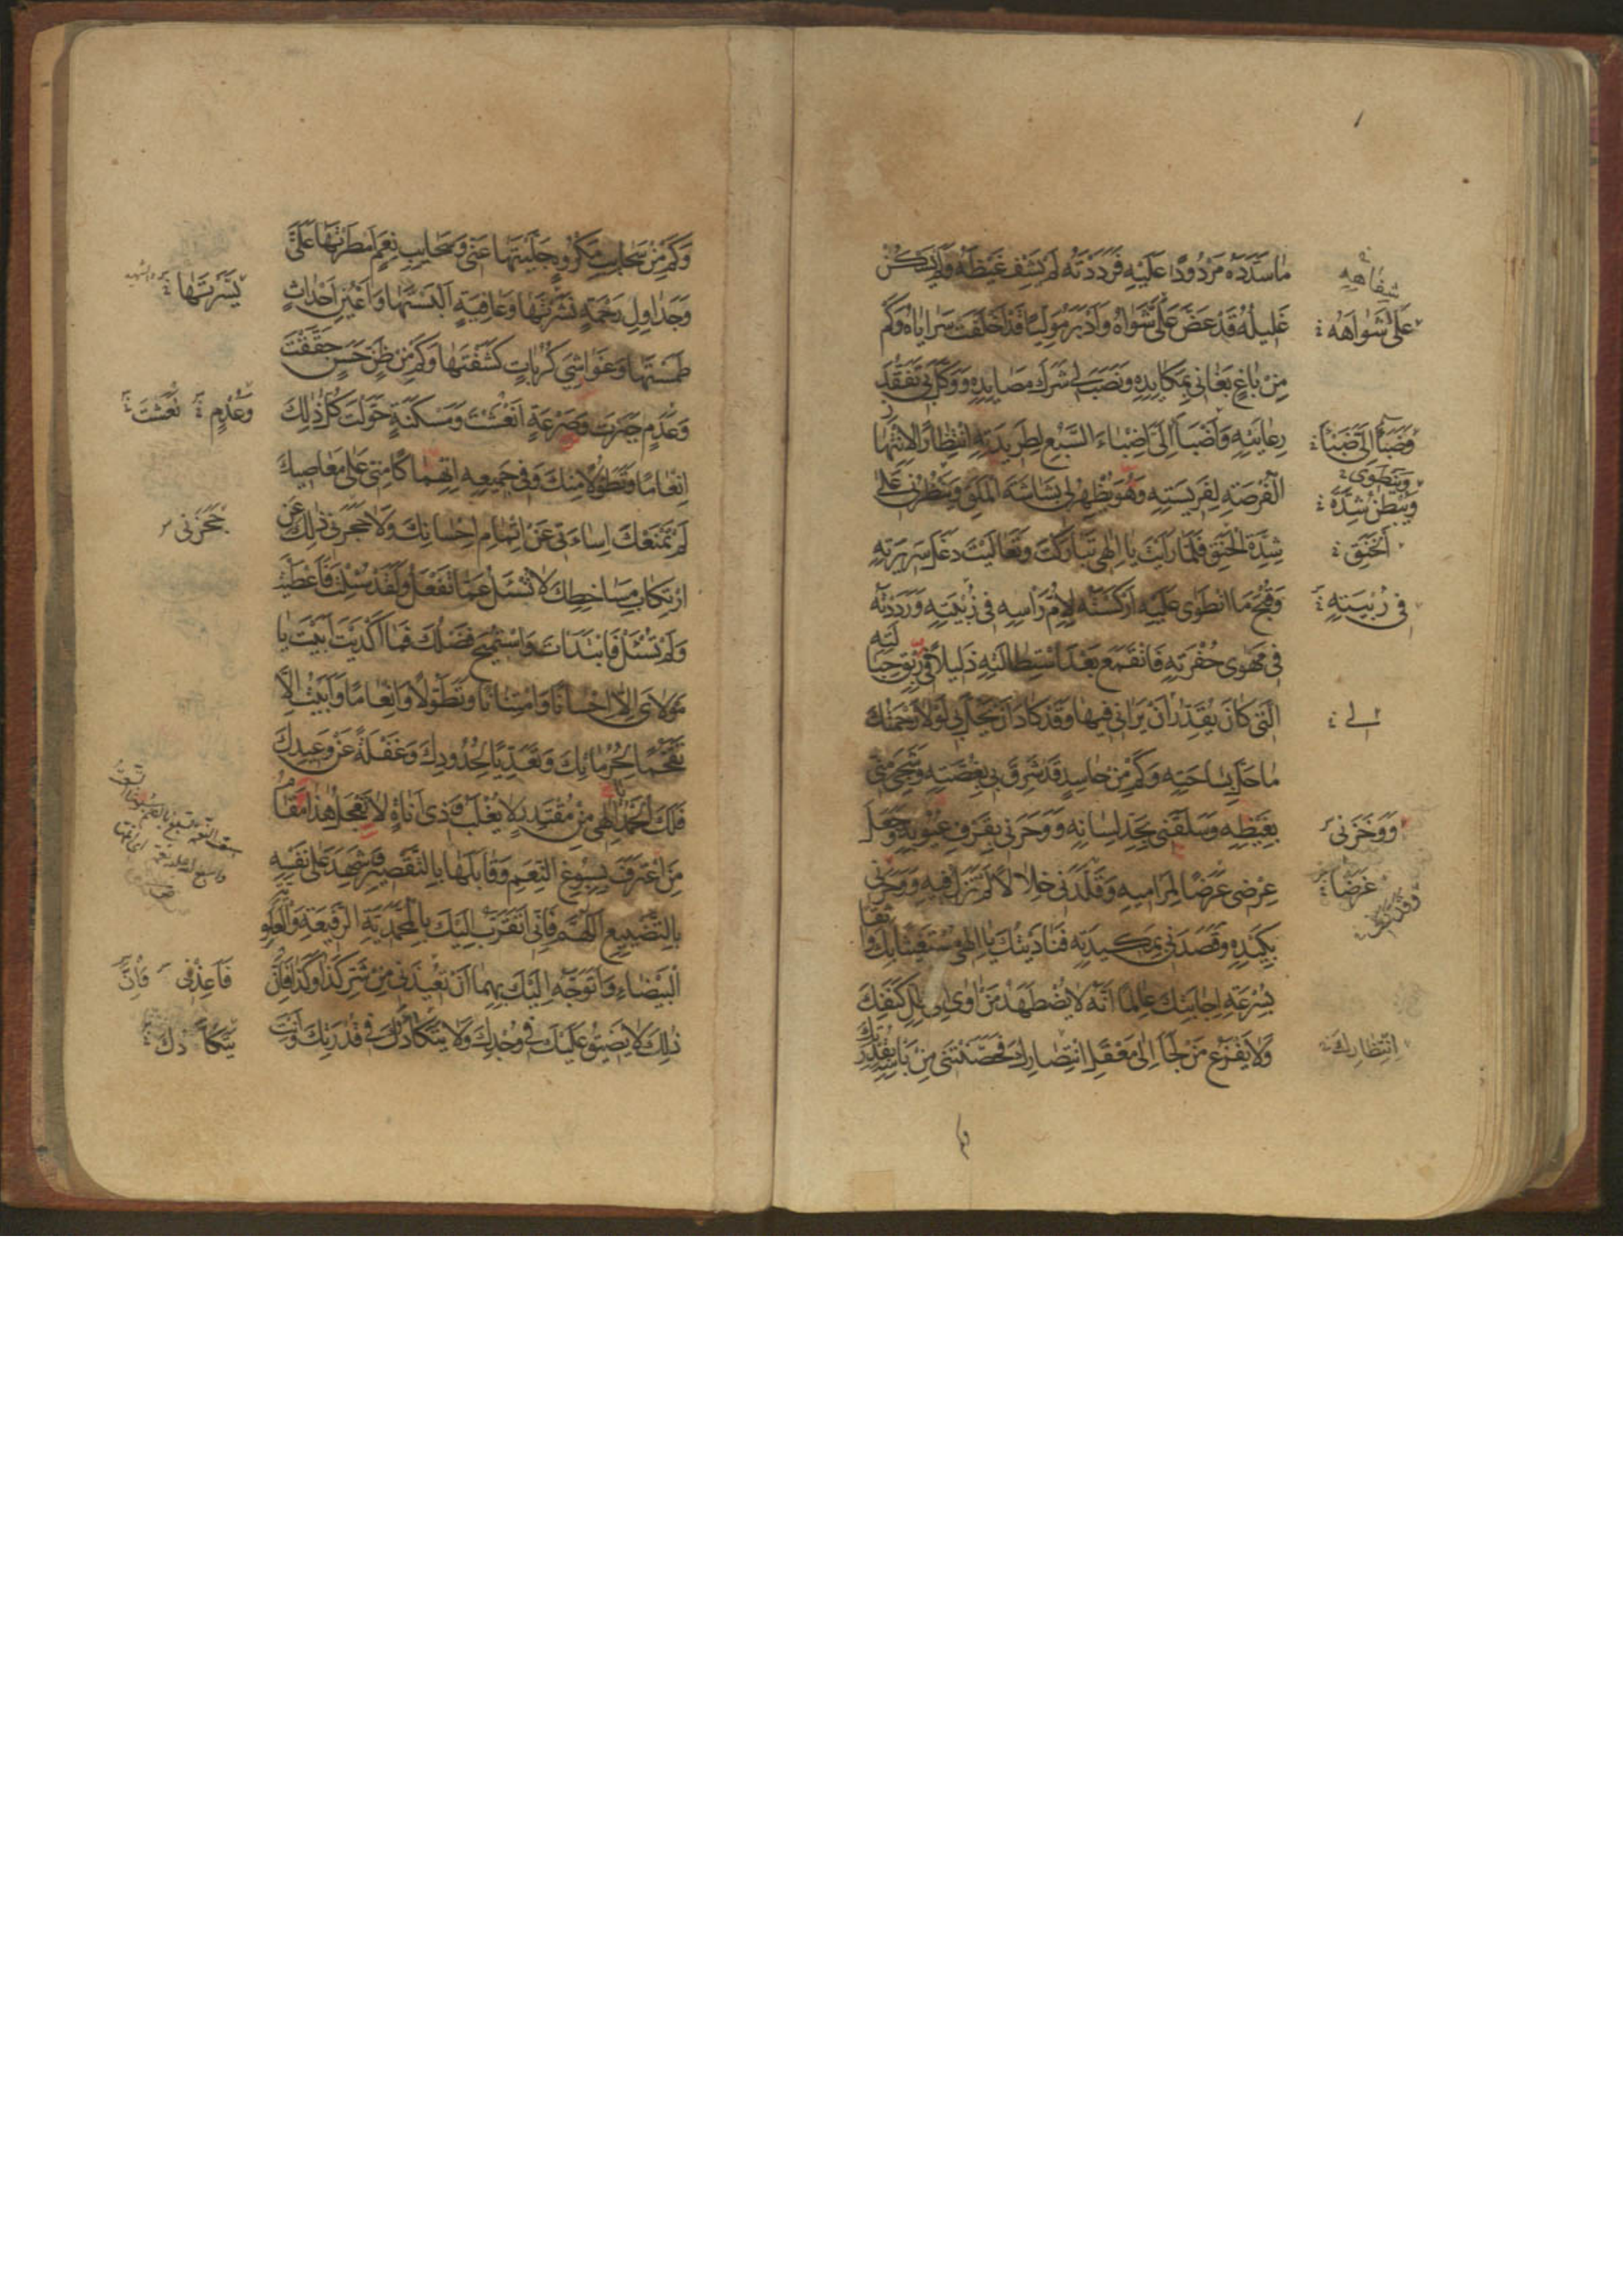 مَا سَدَّدَهُ مَرْدُودًا عَلَيْهِ فَرَدَدْتَهُ لَمْ يَشْفِ غَيْظَهُ وَلَمْ يَسْكُنْ
غَلِيلُهُ قَدْ عَضَّ عَلَى شَوَاهُ وَأَدْبَرَ مُوَلِّيًا قَدْ أَخْلَفَتْ سَرَايَاهُ وَكَمْ
مِنْ بَاغٍ بَغَانِي بِمَكَايِدِهِ وَنَصَبَ لِي شَرَكَ مَصَايِدِهِ وَوَكَّلَ بِي تَفَقُّدَ
رِعَايَتِهِ وَأَضْبَأَ إِلَيَّ اِضْبَاءَ السَّبُعِ لِطَرِيدَتِهِ اِنْتِظَارًا لِانْتِهَازِ
الْفُرْصَةِ لِفَرِيسَتِهِ وَهُوَ يُظْهِرُ لِي بَشَاشَةَ الْمَلَقِ وَيَنْظُرُنِي عَلَى
شِدَّةِ الْحَنَقِ فَلَمَّا رَأَيْتَ يَا اِلٰهِي تَبَارَكْتَ وَتَعَالَيْتَ دَغَلَ سَرِيرَتِهِ
وَقُبْحَ مَا انْطَوَى عَلَيْهِ اَرْكَسْتَهُ لِأُمِّ رَأْسِهِ فِي زُبْيَتِهِ وَرَدَدْتَهُ
فِي مَهْوَى حُفْرَتِهِ فَانْقَمَعَ بَعْدَ اسْتِطَالَتِهِ ذَلِيلًا فِي رِبَقِ حِبَالَتِهِ
الَّتِي كَانَ يُقَدِّرُ اَنْ يَرَانِي فِيهَا وَقَدْ كَادَ اَنْ يَحُلَّ بِي لَوْلَا رَحْمَتُكَ
مَا حَلَّ بِسَاحَتِهِ وَكَمْ مِنْ حَاسِدٍ قَدْ شَرِقَ بِي بِغُصَّتِهِ وَشَجِيَ مِنِّي
بِغَيْظِهِ وَسَلَقَنِي بِحَدِّ لِسَانِهِ وَوَحَرَنِي بِقَرْفِ عُيُوبِهِ وَجَعَلَ
عِرْضِي غَرَضًا لِمَرَامِيهِ وَقَلَّدَنِي خِلَالًا لَمْ تَزَلْ فِيهِ وَوَحَرَنِي
بِكَيْدِهِ وَقَصَدَنِي بِمَكِيدَتِهِ فَنَادَيْتُكَ يَا اِلٰهِي مُسْتَغِيثًا بِكَ وَاثِقًا
بِسُرْعَةِ اِجَابَتِكَ عَالِمًا اَنَّهُ لَا يُضْطَهَدُ مَنْ اَوَى اِلَى ظِلِّ كَنَفِكَ
وَلَا يَفْزَعُ مَنْ لَجَأَ اِلَى مَعْقِلِ انْتِصَارِكَ فَحَصَّنْتَنِي مِنْ بَأْسِهِ بِقُدْرَتِكَ
شِفَاهِهِ
عَلَى شَوَاهُهُ
وَضَبَأَ إِلَيَّ ضَبَأَ
وَيَنْطَوِي
وَيُبْطِنُ شِدَّةَ
الْحَنَقِ
فِي زُبْيَتِهِ
لِي
وَوَخَزَنِي
غَرَضًا
اِنْتِظَارِكَ
وَكَمْ مِنْ سَحَابِ مَكْرُوهٍ جَلَّيْتَهَا عَنِّي وَسَحَابِ نِعَمٍ اَمْطَرْتَهَا عَلَيَّ
وَجَدَاوِلِ رَحْمَةٍ نَشَرْتَهَا وَعَافِيَةٍ اَلْبَسْتَهَا وَاَعْيُنِ اَحْدَاثٍ
طَمَسْتَهَا وَغَوَاشِي كُرُبَاتٍ كَشَفْتَهَا وَكَمْ مِنْ ظَنٍّ حَسَنٍ حَقَّقْتَ
وَعَدَمٍ جَبَرْتَ وَصَرْعَةٍ اَنْعَشْتَ وَمَسْكَنَةٍ حَوَّلْتَ كُلُّ ذٰلِكَ
اِنْعَامًا وَتَطَوُّلًا مِنْكَ وَفِي جَمِيعِهِ اِنْهِمَاكًا مِنِّي عَلَى مَعَاصِيكَ
لَمْ تَمْنَعْكَ اِسَاءَتِي عَنْ اِتْمَامِ اِحْسَانِكَ وَلَا حَجَرَنِي ذٰلِكَ عَنِ
ارْتِكَابِ مَسَاخِطِكَ لَا تُسْئَلُ عَمَّا تَفْعَلُ وَلَقَدْ سُئِلْتَ فَاَعْطَيْتَ
وَلَمْ تُسْئَلْ فَابْتَدَأْتَ وَاسْتُمِيحَ فَضْلُكَ فَمَا اَكْدَيْتَ اَبَيْتَ يَا
مَوْلَايَ اِلَّا اِحْسَانًا وَامْتِنَانًا وَتَطَوُّلًا وَاِنْعَامًا وَاَبَيْتُ اِلَّا
تَقَحُّمًا لِحُرُمَاتِكَ وَتَعَدِّيًا لِحُدُودِكَ وَغَفْلَةً عَنْ وَعِيدِكَ
فَلَكَ الْحَمْدُ اِلٰهِي مِنْ مُقْتَدِرٍ لَا يُغْلَبُ وَذِي اَنَاةٍ لَا يَعْجَلُ هٰذَا مَقَامُ
مَنِ اعْتَرَفَ بِسُبُوغِ النِّعَمِ وَقَابَلَهَا بِالتَّقْصِيرِ وَشَهِدَ عَلَى نَفْسِهِ
بِالتَّضْيِيعِ اَللّٰهُمَّ فَاِنِّي اَتَقَرَّبُ اِلَيْكَ بِالْمُحَمَّدِيَّةِ الرَّفِيعَةِ وَالْعَلَوِيَّةِ
الْبَيْضَاءِ وَاَتَوَجَّهُ اِلَيْكَ بِهِمَا اَنْ تُعِيذَنِي مِنْ شَرِّ كَذَا وَكَذَا فَاِنَّ
ذٰلِكَ لَا يَضِيقُ عَلَيْكَ فِي وُجْدِكَ وَلَا يَتَكَأَّدُكَ فِي قُدْرَتِكَ وَاَنْتَ
وَعُدْمٍ نَعَشْتَ
حَجَزَنِي
فَاَعِذْنِي فَاِنَّ
يَتَكَأَّدُكَ